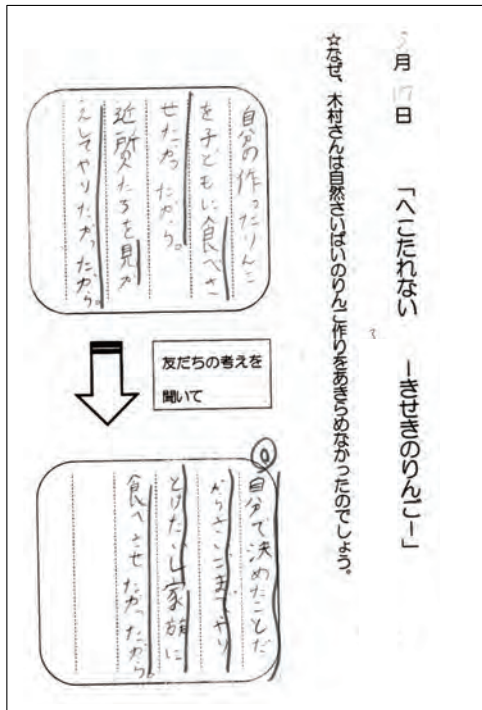 3月17日 「へこたれない ーきせきのりんごー」
☆なぜ、木村さんは自然さいばいのりんご作りをあきらめなかったのでしょう。
自分の作ったりんご
を子どもに食べさ
せたかったから。
近所の人たちを見か
えしてやりたかったから。
友だちの考えを
聞いて
自分で決めたことだ
からさいごまでやり
とげたいし家族に
食べさせたかったから。